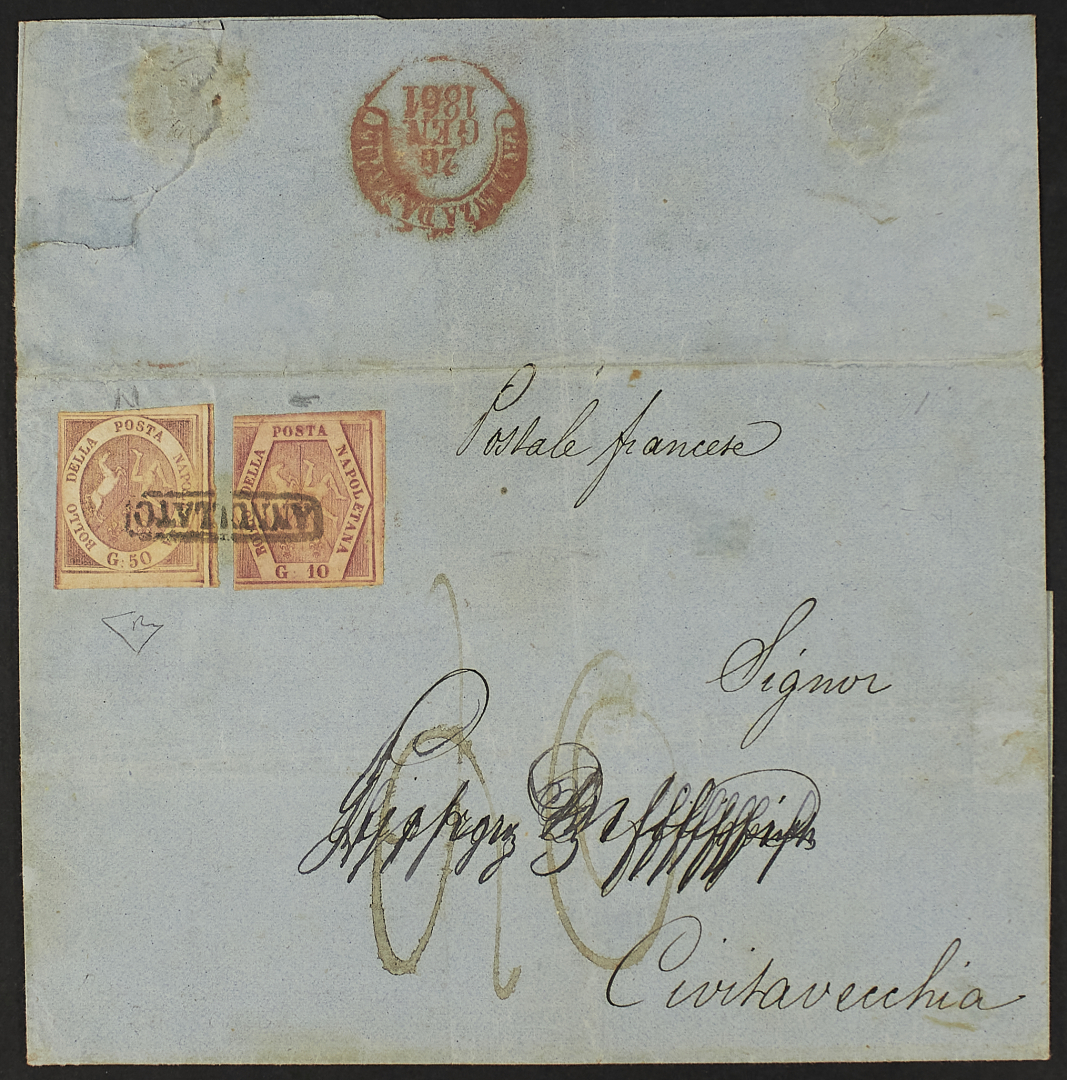 26
GEN
1861
Postale francese
BOLLO DELLA POSTA
G: 50
DELLA POSTA NAPOLETANA
G 10
ANNULLATO
Signor
Civitavecchia